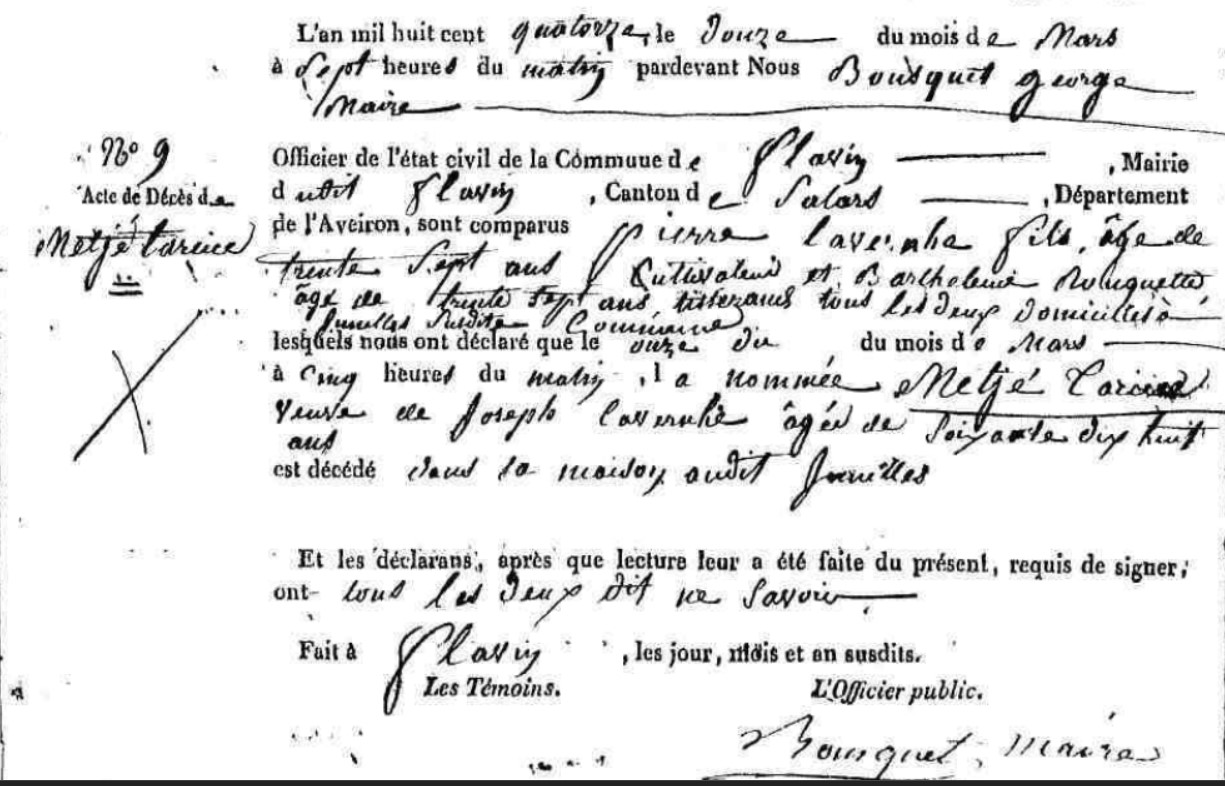 L'an mil huit cent quatorze, le Douze du mois de Mars
à Sept heures du matin pardevant Nous Bousquet george
Maire
N° 9
Acte de Décès de
Metjé Carcice
Officier de l'état civil de la Commune de flavin, Mairie
dudit flavin, Canton de Salars, Département
de l'Aveiron, sont comparus pierre lavernhe fils, âge de
trente Sept ans Cultivateur et Barthelemie Rouquette
âgé de trente sept ans tisserand tous les deux Domiciliés à
susdite Commune
lesquels nous ont déclaré que le onze du du mois de Mars
à Cinq heures du matin, la nommée Metjé
veuve de Joseph Lavernhe âgée de Soixante dix huit
ans
est décédé dans sa maison audit
Et les déclarans, après que lecture leur a été faite du présent, requis de signer,
ont tous les Deux dit ne Savoir
Fait à flavin, les jour, mois et an susdits.
Les Témoins. L'Officier public.
Bousquet, maire